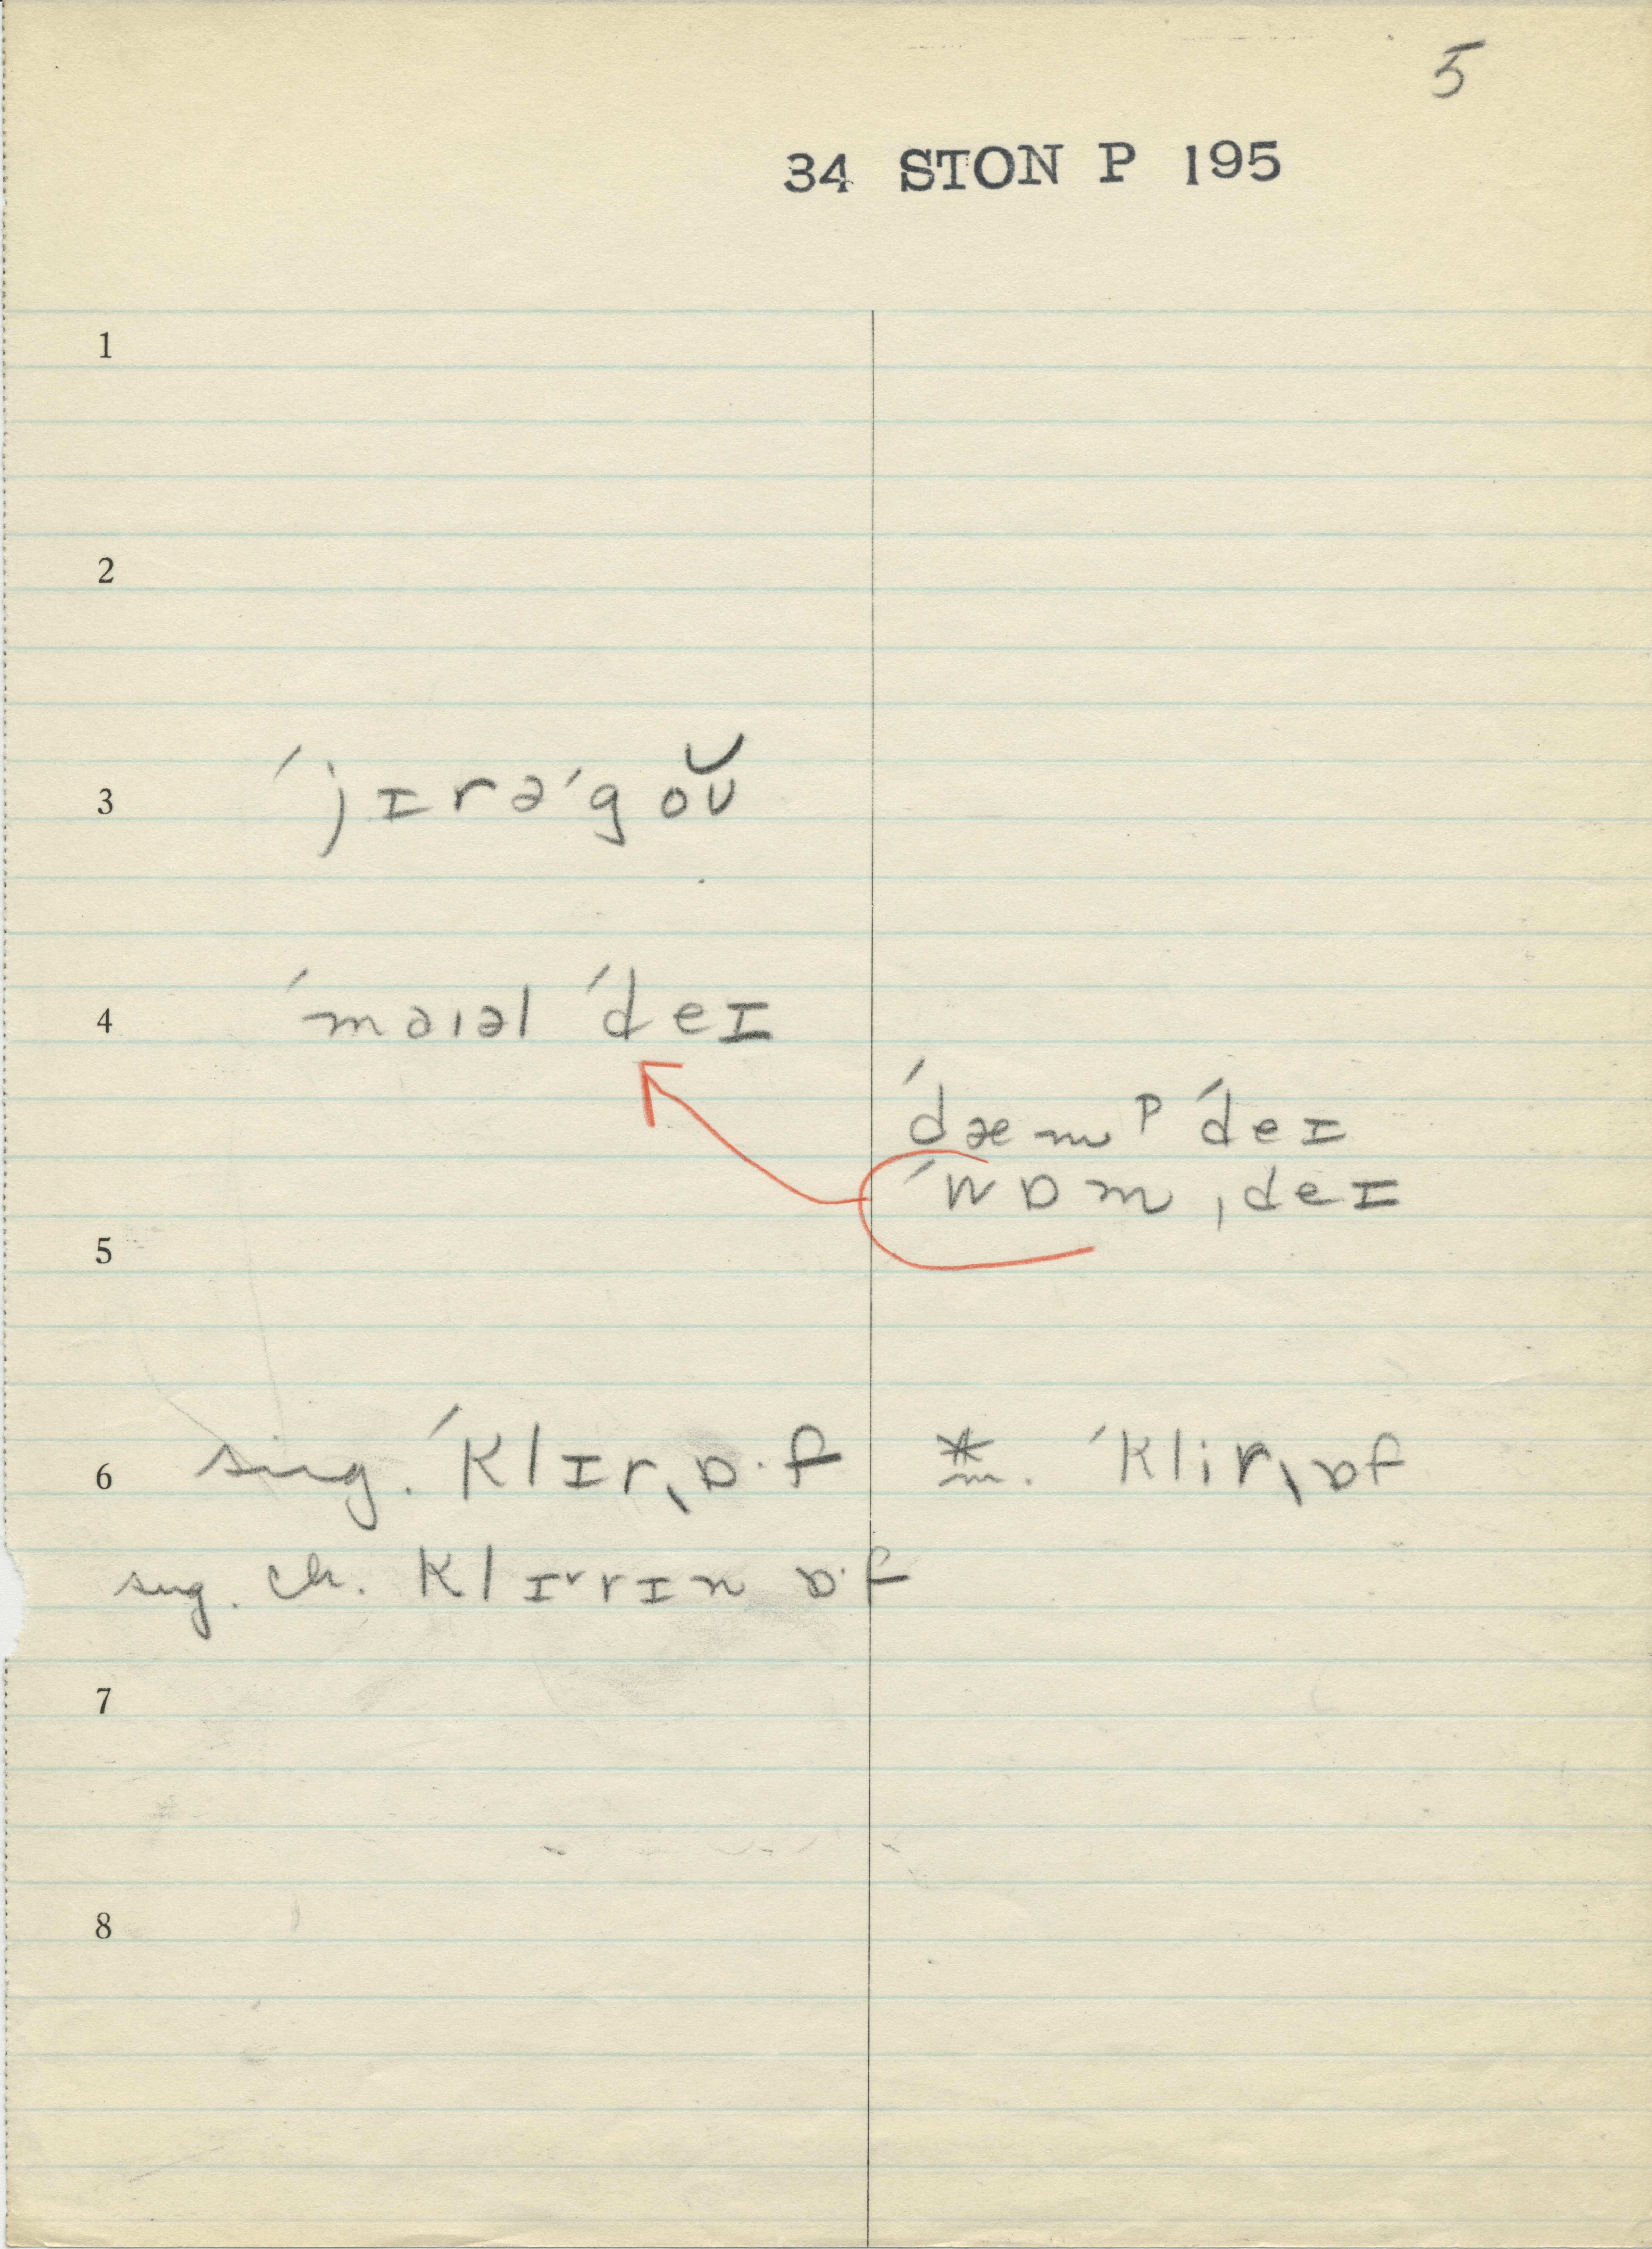 5
34 STON P 195
1
2
3 ˈjɪrəˈgoʊ̆
4 ˈmaɪəl ˈdeɪ
ˈdæmᵖ ˈdeɪ
ˈwɒmˌdeɪ
5
6 sug. ˈklɪrˌɒ·f * m. ˈklirˌɒf
sug. ch. klɪ˅rɪn ɒ·f
7
8